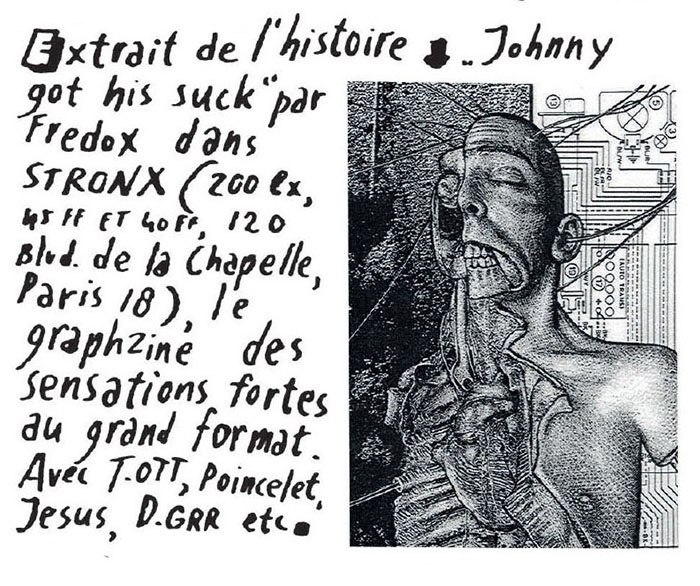 Extrait de l'histoire "Johnny
got his suck" par
Fredox dans
STRONX (200 ex,
45 FF ET 40 FF, 120
Blvd. de la Chapelle,
Paris 18), le
graphzine des
sensations fortes
au grand format.
Avec T.OTT, Poincelet,
Jesus, D.GRR etc.
(AUTO TRANS)